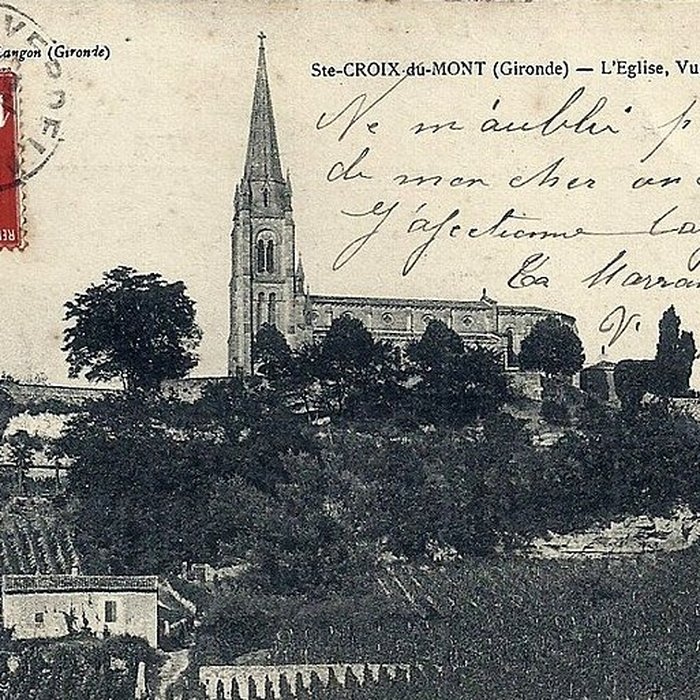 Langon (Gironde)
Ste-CROIX-du-MONT (Gironde) — L'Eglise, Vu
Ne m'aublié p
de mon cher
J'afectionne
Ta Marrai
V.